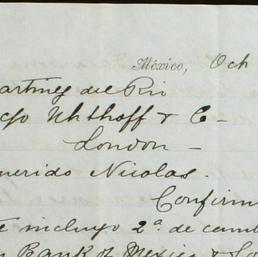 México, Och
artinez del Rio
c/o Uhthoff & C-
London-
uerido Nicolas.
Confirm
te incluyo 2ª de camb
Bank of Mexico & Lo